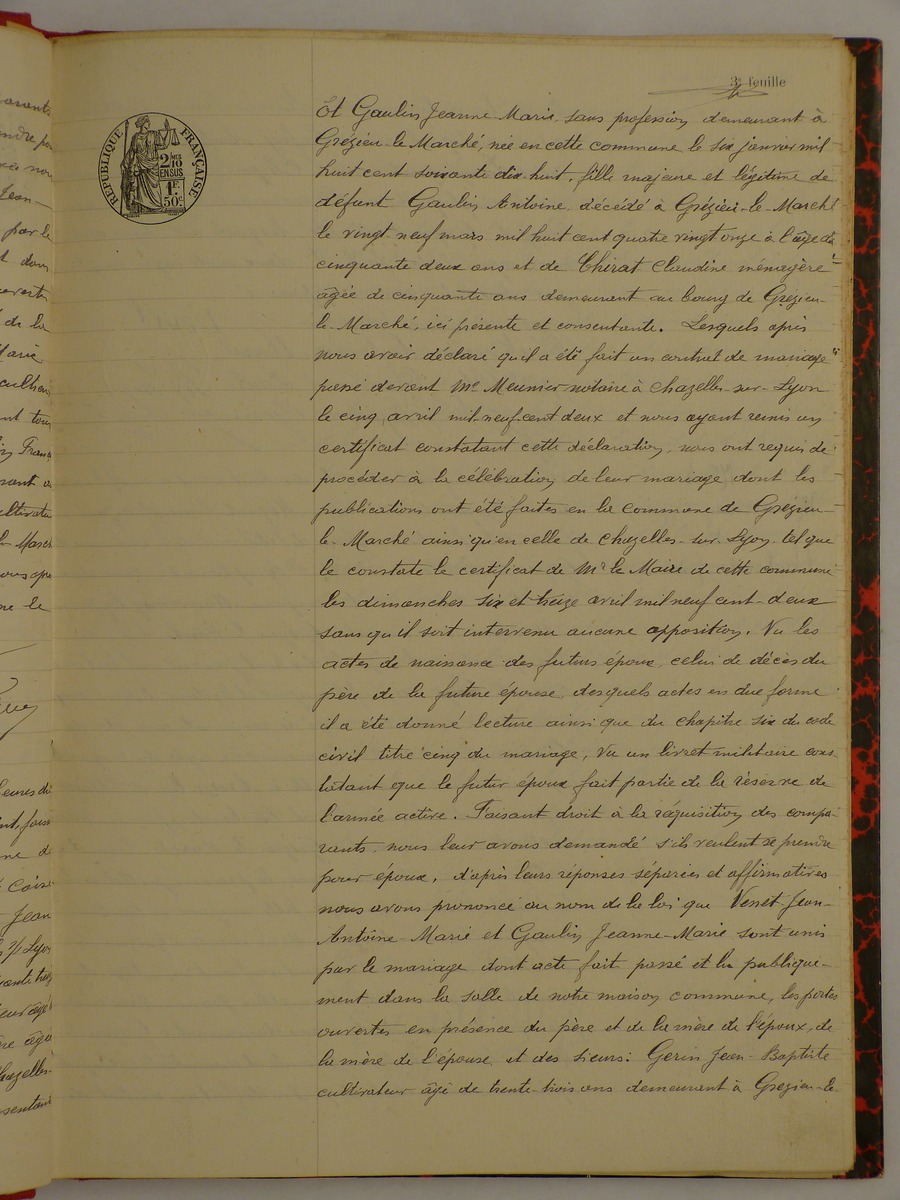 3e feuille
RÉPUBLIQUE FRANÇAISE
2 MES 10
EN SUS
1 F.
50 c.
Et Gaulin Jeanne-Marie, sans profession, demeurant à
Grézieu-le-Marché, née en cette commune le six janvier mil
huit cent soixante dix-huit, fille majeure et légitime de
défunt Gaulin Antoine, décédé à Grézieu-le-Marché
le vingt-neuf mars mil huit cent quatre vingt onze à l'âge de
cinquante deux ans et de Thirat Claudine ménagère
âgée de cinquante ans demeurant au bourg de Grézieu-
le-Marché, ici présente et consentante. Lesquels après
nous avoir déclaré qu'il a été fait un contrat de mariage
passé devant Me Meunier notaire à Chazelles-sur-Lyon
le cinq avril mil-neuf-cent deux et nous ayant remis un
certificat constatant cette déclaration, nous ont requis de
procéder à la célébration de leur mariage dont les
publications ont été faites en la commune de Grézieu
le-Marché ainsi qu'en celle de Chazelles-sur-Lyon, tel que
le constate le certificat de Mr le Maire de cette commune
les dimanches six et treize avril mil neuf cent-deux
sans qu'il soit intervenu aucune opposition. Vu les
actes de naissance des futurs époux, celui de décès du
père de la future épouse, desquels actes en due forme
il a été donné lecture ainsi que du chapitre six du code
civil titre cinq du mariage, Vu un livret militaire cons-
tatant que le futur époux fait partie de la réserve de
l'armée active. Faisant droit à la réquisition des compa-
rants, nous leur avons demandé s'ils veulent se prendre
pour époux, d'après leurs réponses séparées et affirmatives
nous avons prononcé au nom de la loi que Venet Jean-
Antoine-Marie et Gaulin Jeanne-Marie sont unis
par le mariage dont acte fait passé et lu publique-
ment dans la salle de notre maison commune, les portes
ouvertes en présence du père et de la mère de l'époux, de
la mère de l'épouse et des sieurs: Gerin Jean-Baptiste
cultivateur âgé de trente-trois ans demeurant à Grézieu-le-